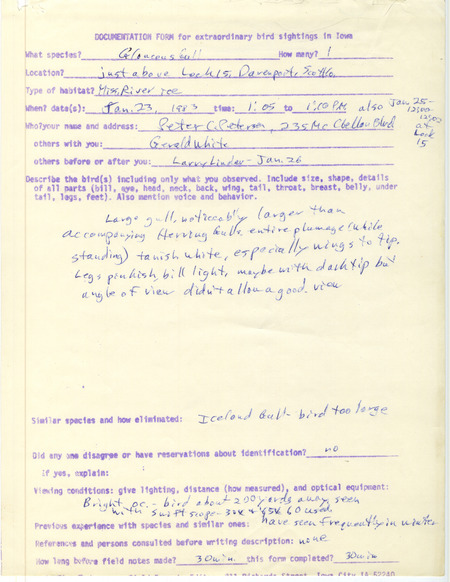 DOCUMENTATION FORM for extraordinary bird sightings in Iowa
What species? Glaucous Gull How many? 1
Location? just above Lock 15, Davenport, Scott Co.
Type of habitat? Miss. River ice
When? date(s): Jan. 23, 1983 time: 1:05 to 1:10 PM also Jan 25-
12:00
12:02
at
Lock
15
Who? your name and address: Peter C. Petersen, 235 McClellan Blvd
others with you: Gerald White
others before or after you: Larry Linder - Jan. 26
Describe the bird(s) including only what you observed. Include size, shape, details
of all parts (bill, eye, head, neck, back, wing, tail, throat, breast, belly, under
tail, legs, feet). Also mention voice and behavior.
Large gull, noticably larger than
accompanying Herring Gulls, entire plumage (while
standing) tanish white, especially wings to tip.
Legs pinkish, bill light, maybe with dark tip but
angle of view didn't allow a good view
Similar species and how eliminated: Iceland Gull - bird too large
Did any one disagree or have reservations about identification? no
If yes, explain:
Viewing conditions: give lighting, distance (how measured), and optical equipment:
Bright oc. - bird about 200 yards away, seen
with Swift scope - 30x 60 used
Previous experience with species and similar ones: have seen frequently in winter
References and persons consulted before writing description: none
How long before field notes made? 30 min this form completed? 30 min
Street, Iowa City IA 52240